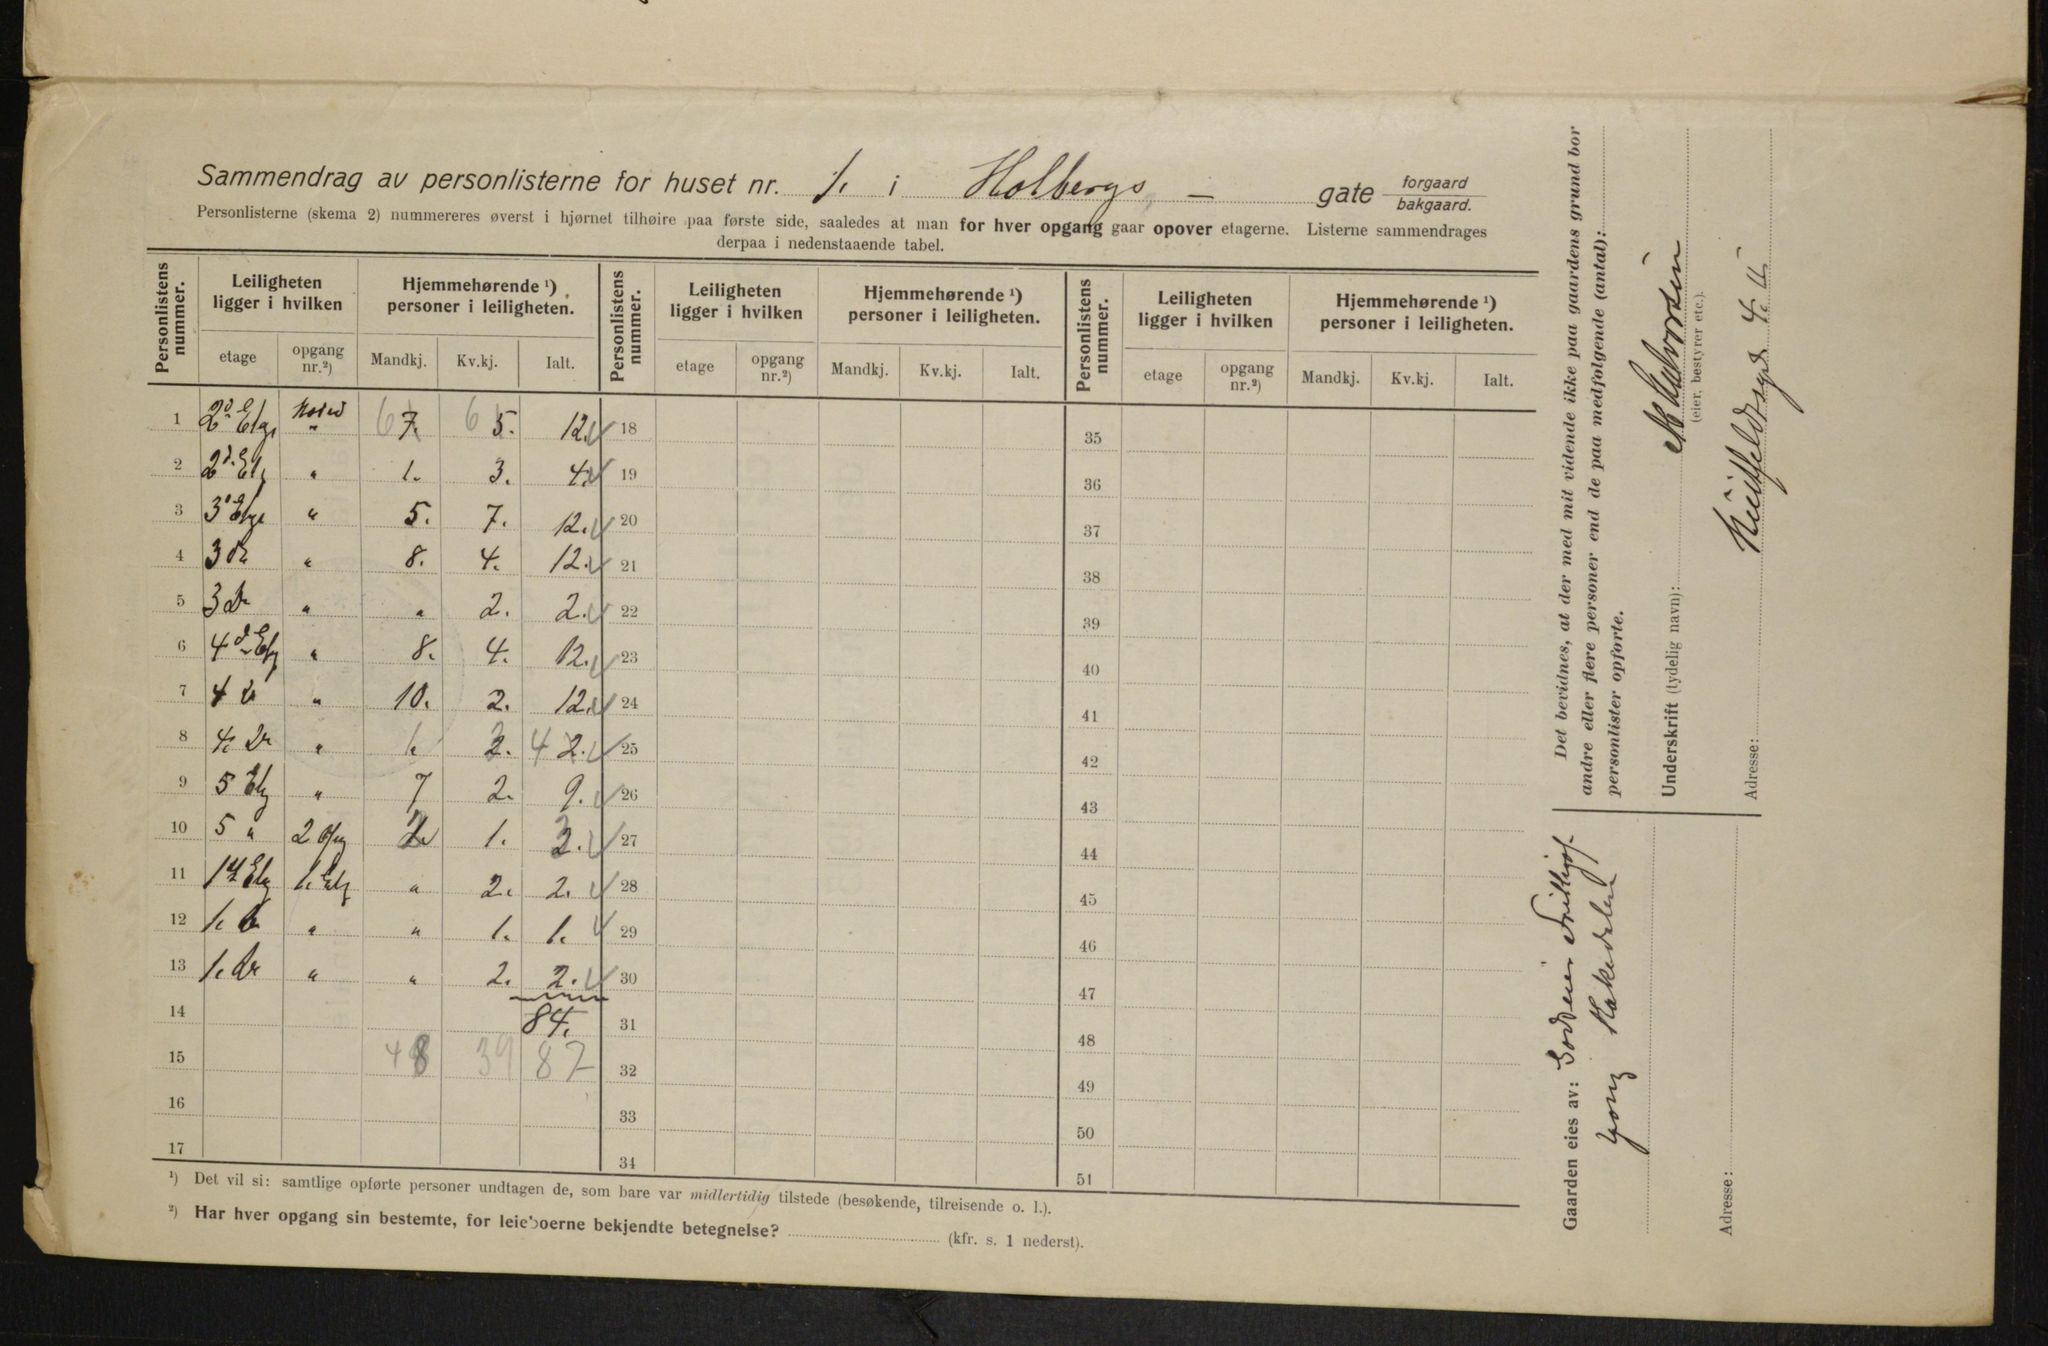 Sammendrag av personlisterne for huset nr. 1. i Holbergs - gate forgaard bakgaard.
Personlisterne (skema 2) nummereres øverst i hjørnet tilhøire paa første side, saaledes at man for hver opgang gaar opover etagerne. Listerne sammendrages
derpaa i nedenstaaende tabel.
Personlistens nummer. Leiligheten ligger i hvilken Hjemmehørende ¹) personer i leiligheten. Personlistens nummer. Leiligheten ligger i hvilken Hjemmehørende ¹) personer i leiligheten. Personlistens nummer. Leiligheten ligger i hvilken Hjemmehørende ¹) personer i leiligheten.
etage opgang nr.²) Mandkj. Kv.kj. Ialt. etage opgang nr.²) Mandkj. Kv.kj. Ialt. etage opgang nr.²) Mandkj. Kv.kj. Ialt.
1 2d Etg " 6 7. 6 5. 12. 18 35
2 2d. Etg " 1. 3. 4. 19 36
3 3d Etge " 5. 7. 12. 20 37
4 3 do " 8. 4. 12. 21 38
5 3 Do " " 2. 2. 22 39
6 4d Etg " 8. 4. 12. 23 40
7 4 do " 10. 2. 12. 24 41
8 4. Do " 1. 3. 4 2. 25 42
9 5 Etg " 7 2. 9. 26 43
10 5 " 2 Opg 2. 1. 3. 27 44
11 1st Etg 1. Etg " 2. 2. 28 45
12 1. Do " " 1. 1. 29 46
13 1. Do " " 2. 2. 30 47
14 84. 31 48
15 48 39 87 32 49
16 33 50
17 34 51
¹) Det vil si: samtlige opførte personer undtagen de, som bare var midlertidig tilstede (besøkende, tilreisende o. l.).
²) Har hver opgang sin bestemte, for leieboerne bekjendte betegnelse? (kfr. s. 1 nederst).
Det bevidnes, at der med mit vidende ikke paa gaardens grund bor
andre eller flere personer end de paa medfølgende (antal):
personlister opførte.
Underskrift (tydelig navn): M Halvorsen
(eier, bestyrer etc.).
Adresse: Huitfeldsgd 4. II
Gaarden eies av: Godseier
Adresse: